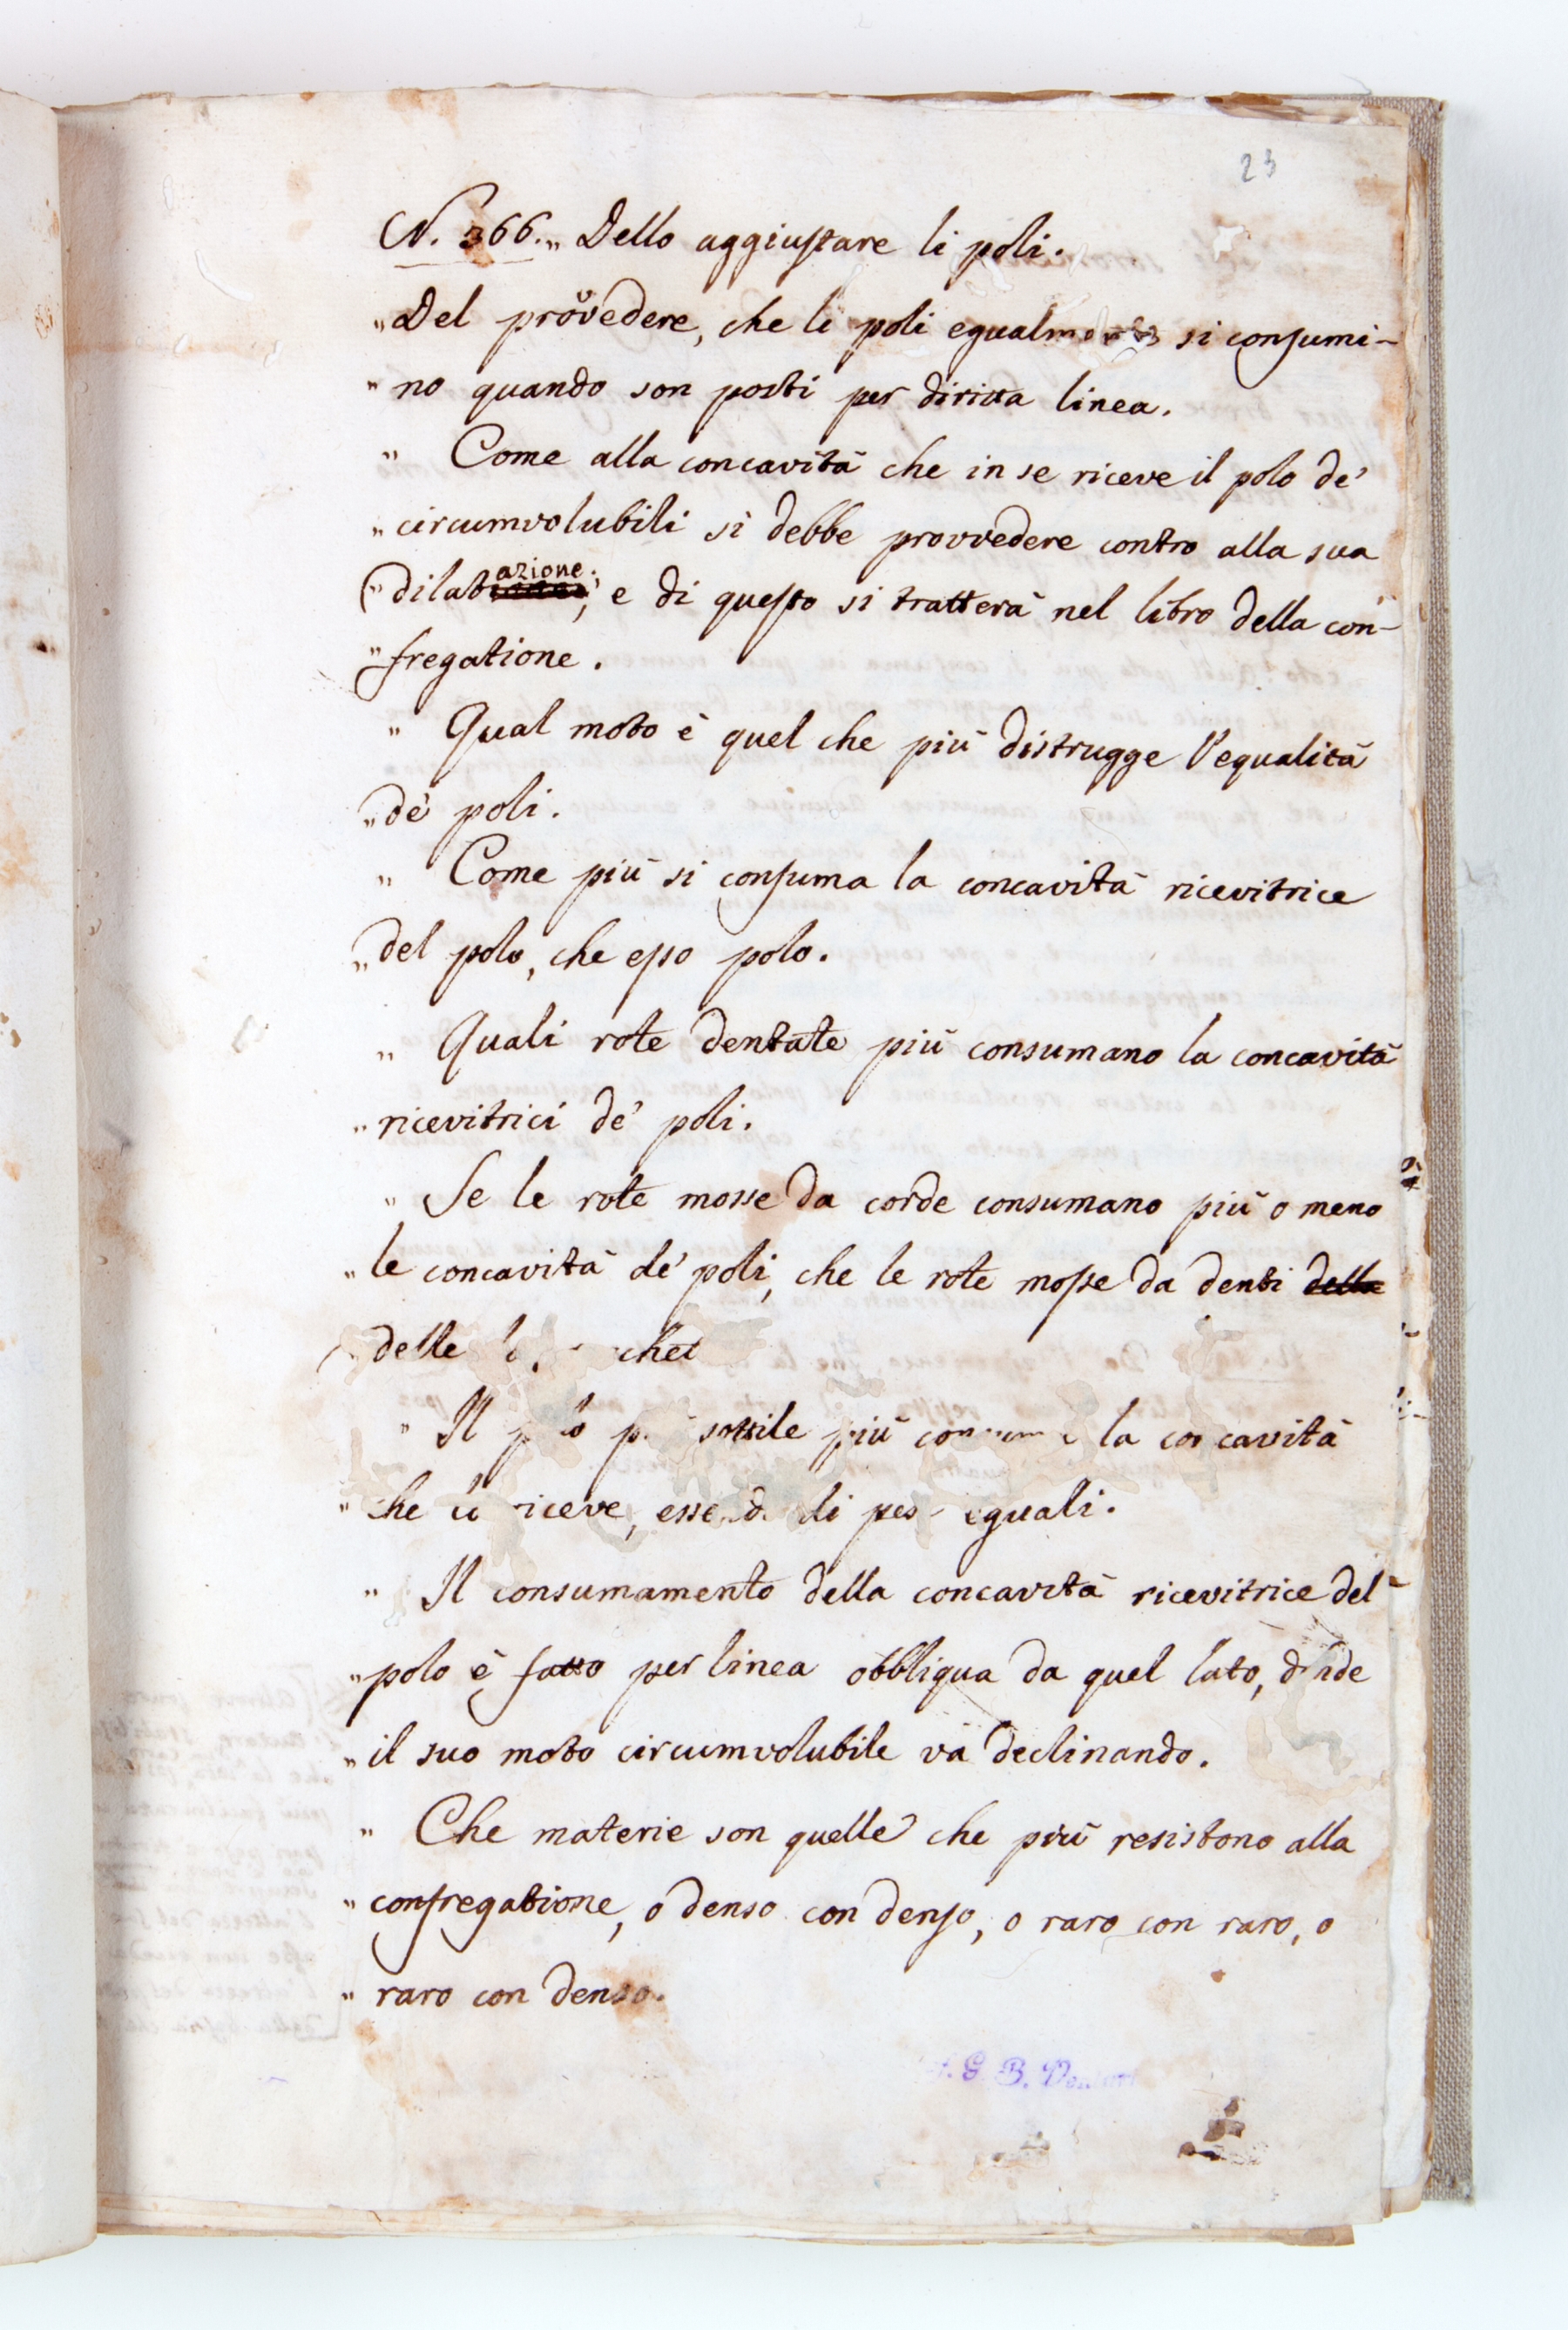 23
N. 366. „ Dello aggiustare li poli.
„ Del provvedere, che li poli egualmente si consumi-
„ no quando son posti per diritta linea.
„ Come alla concavità che in se riceve il polo de'
„ circumvolubili si debbe provvedere contro alla sua
„ dilatazione; e di questo si tratterà nel libro della con-
„ fregatione.
„ Qual moto è quel che più distrugge l'equalità
„ de' poli.
„ Come più si consuma la concavità ricevitrice
„ del polo, che esso polo.
„ Quali rote dentate più consumano la concavità
„ ricevitrici de' poli.
„ Se le rote mosse da corde consumano più o meno
„ le concavità de' poli, che le rote mosse da denti della
„ delle
„ Il polo più sottile più consuma la concavità
„ che lo riceve, essendo di pesi eguali.
„ Il consumamento della concavità ricevitrice del
„ polo è fatto per linea obbliqua da quel lato, donde
„ il suo moto circumvolubile và declinando.
„ Che materie son quelle che più resistono alla
„ confregatione, o denso con denso, o raro con raro, o
„ raro con denso.
G. B.